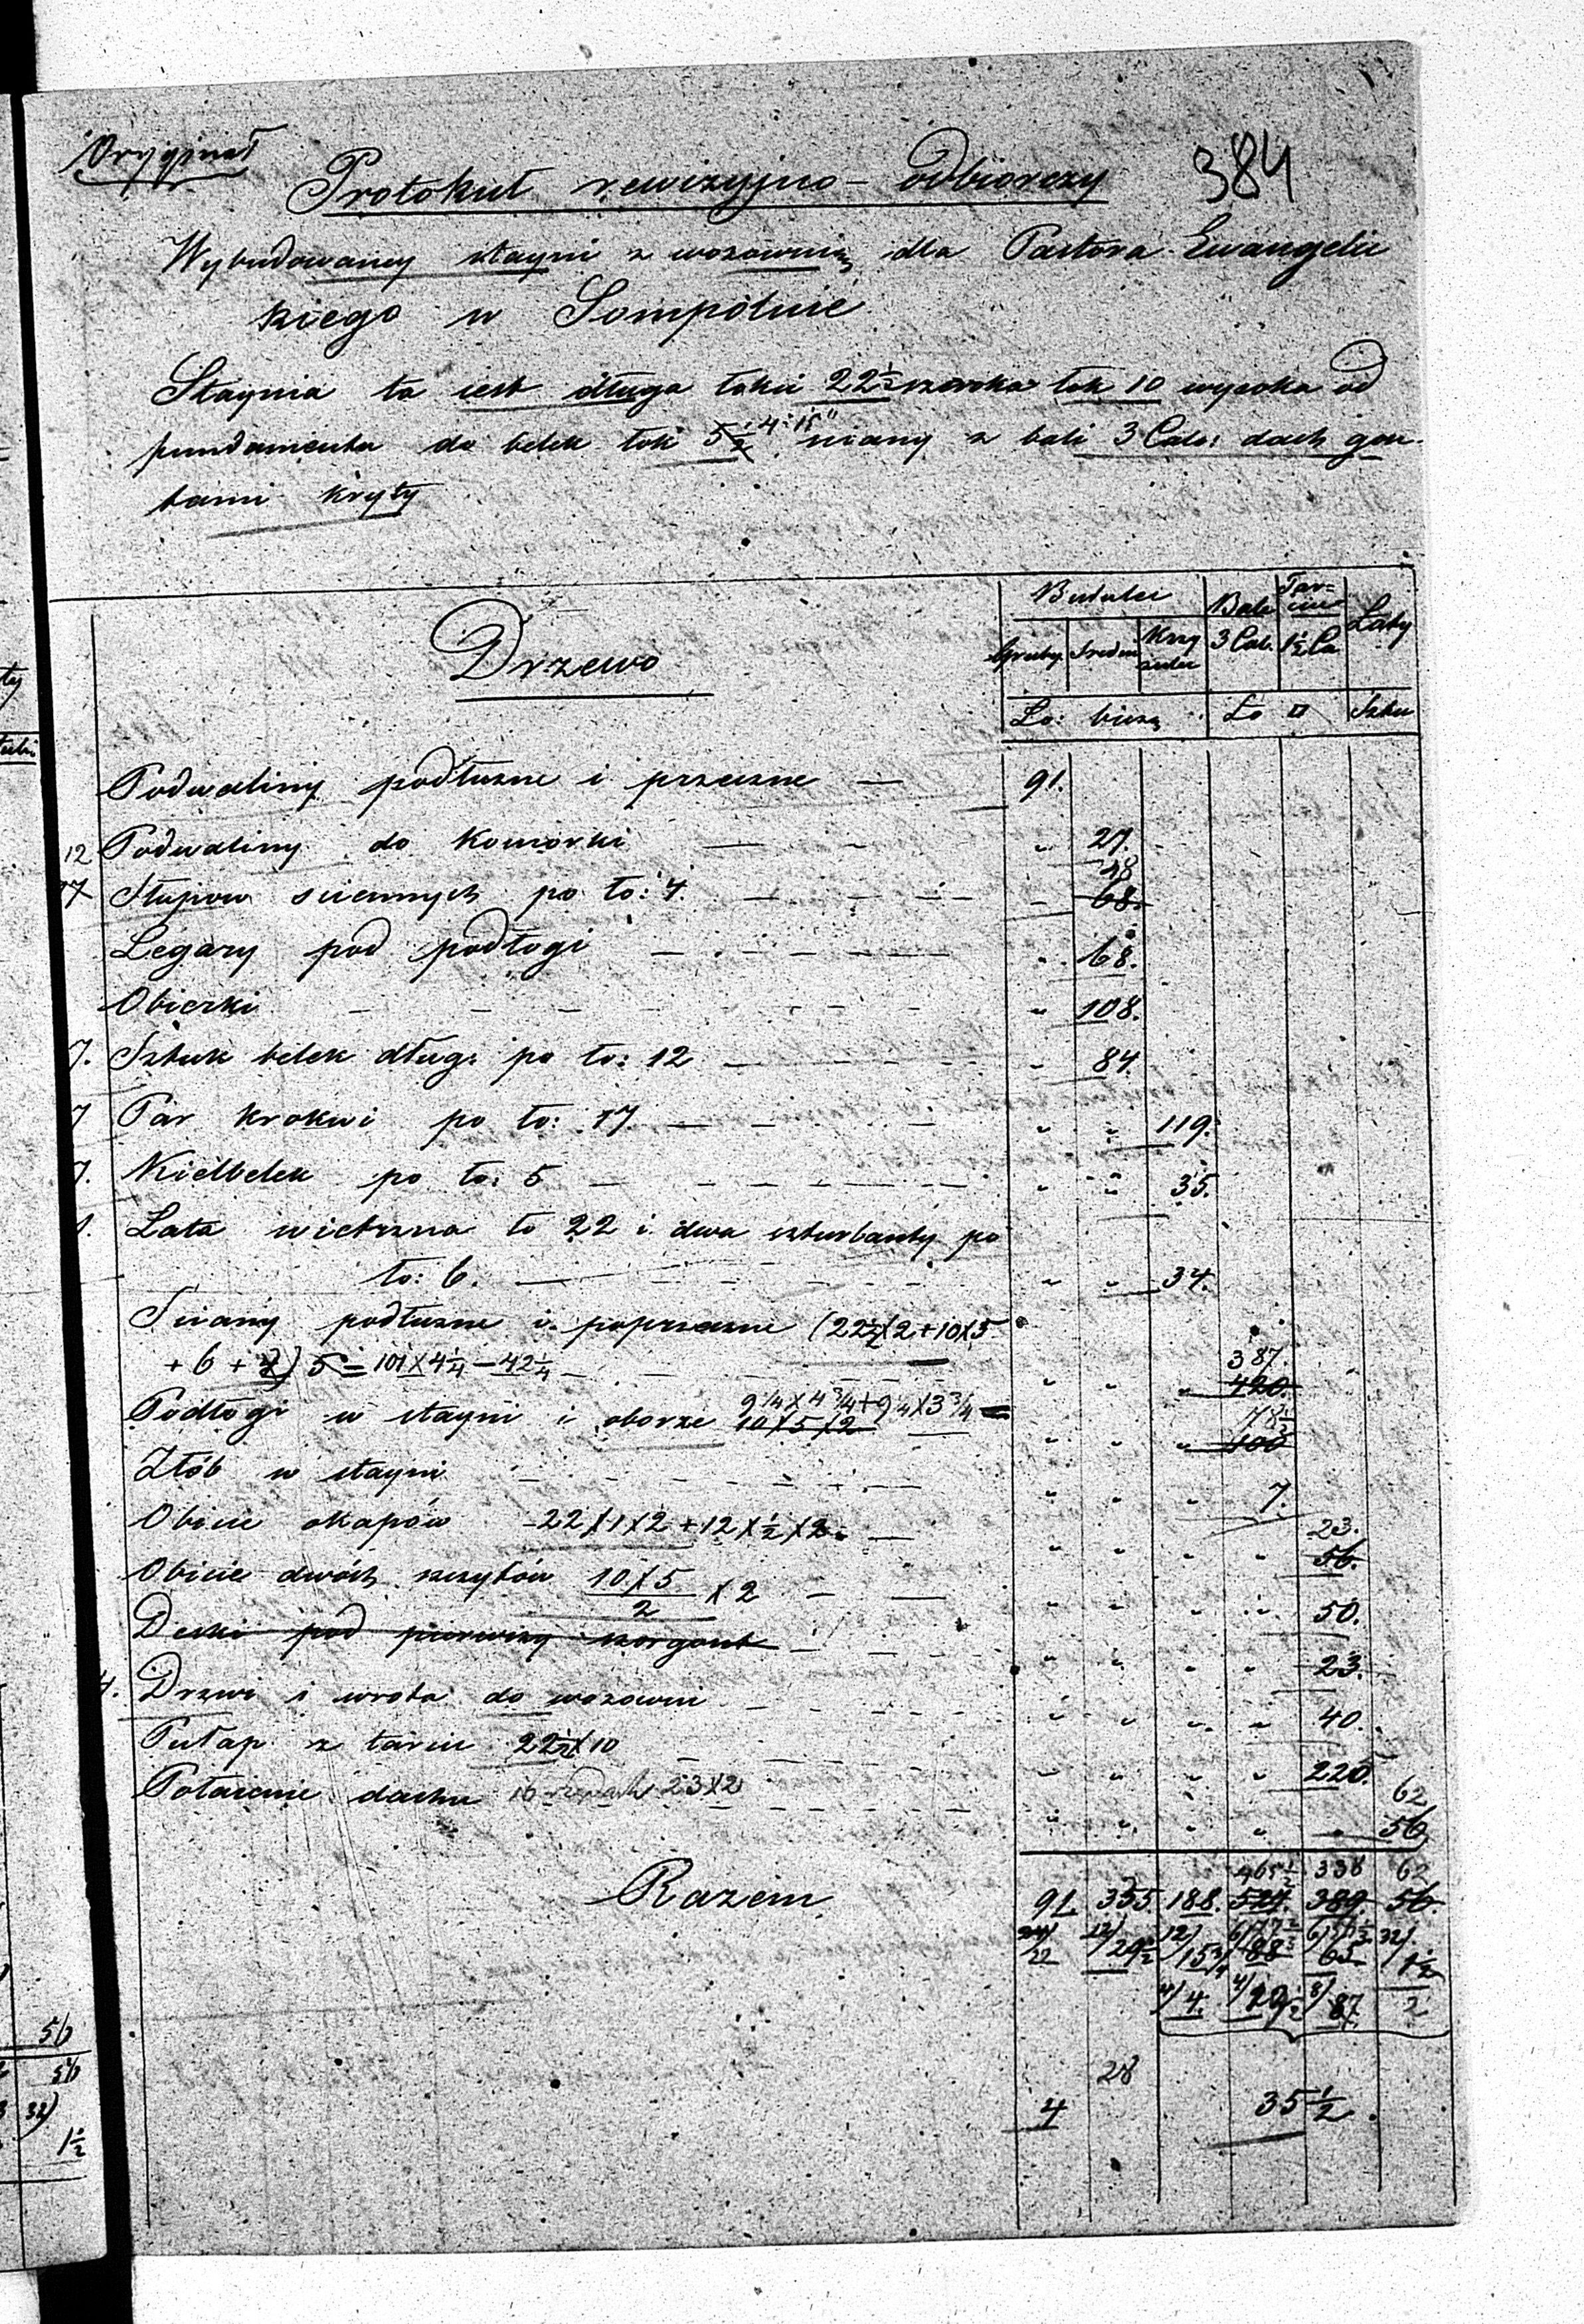 Oryginał
384
Protokuł rewizyjno-odbiorczy
Wybudowaney stayni z wozownią dla Pastora Ewangelic
kiego w Sompolnie
Staynia ta iest długa łokci 22½ szeroka łok 10 wysoka od
fundamentu do belek łok 5½ 4:15" sciany z bali 3 Calo: dach gon-
tami kryty
Drzewo
Budulec Bale Tar- Laty
cice
Gruby Sredni Krzy 3 Cal. 1½ Ca
żulec
Ło: bieżą Ło □ Sztu
Podwaliny podłużne i przeczne — 91.
12 Podwaliny do komorki — " 27.
17 Słupow sciennych po ło: 4. — " 48 68.
Legary pod podłogi — " 68.
Obierki — " 108.
7. Sztuk belek długs po ło: 12 — " 84.
7 Par krokwi po ło: 17 — " " 119.
7. Kielbelek po ło: 5 — " " 35.
1. Łata wietrzna ło 22 i dwa szturbanty po
ło: 6. — " " 34.
Sciany podłużne i poprzeczne (22½×2+10×5
+6+4) 5 = 101×4¼—42¼ — " " " 387. 420.
Podłogi w stayni i oborze 9¼×4¾+9¼×3¾ 10×5×2 — " " " 78½ 100
Żłób w stayni — " " " 7.
Obicie okapów 22×1×2+12×½×2. — " " " " 23. 56.
Obicie dwóch szczytów 10×5/2 ×2 — " " " " 50.
Deski pod pierwszy szorgont — " " " " 23.
4. Drzwi i wrota do wozowni — " " " " 40.
Pułap z tarcic 22½×10 — " " " " 225.
Połacenie dachu 16 23×2 — " " " " " 62 56
465½ 338 62
Razem 91. 355. 188. 527. 389. 56.
22 12) 29½ 12) 15¾ 6) 77⅔ 88 6) 65 32) 1½
4) 4. 4) 8) 87. 2
28
4 35½.